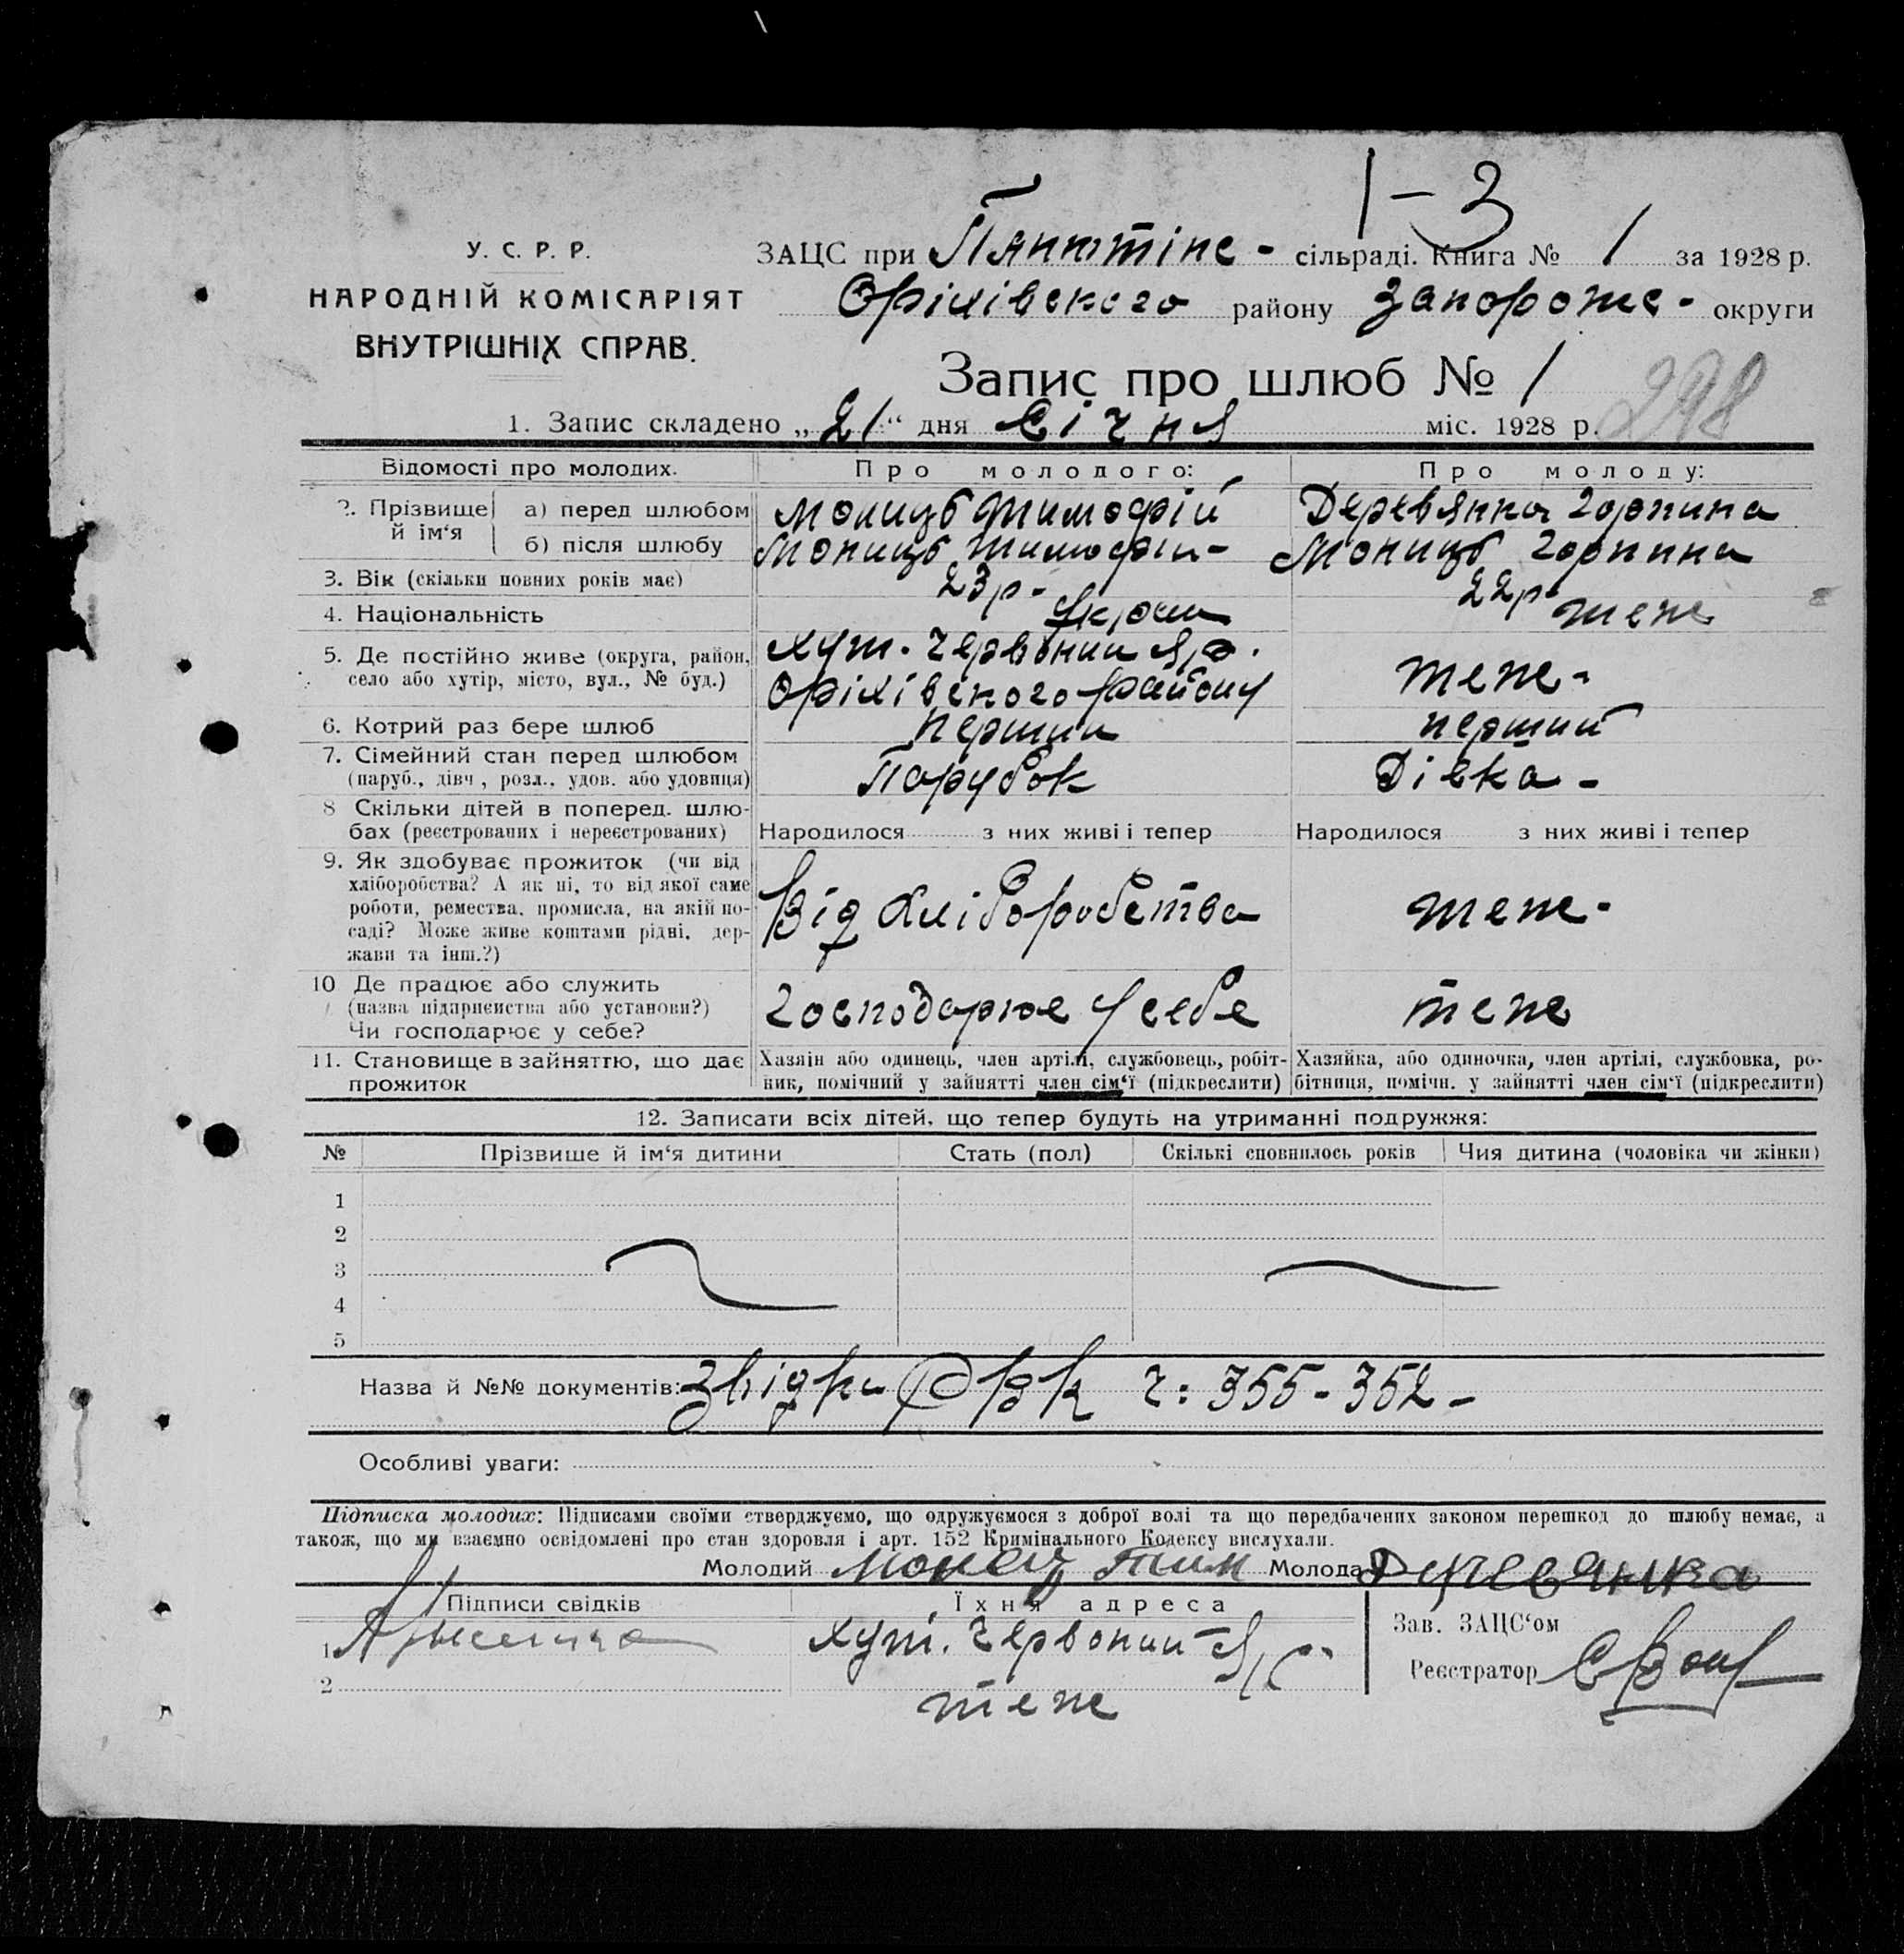 1-3
У. С. Р. Р.
НАРОДНІЙ КОМІСАРІЯТ
ВНУТРІШНІХ СПРАВ.
ЗАЦС при сільраді. Книга № 1 за 1928 р.
Оріхівского району Запороже- округи
Запис про шлюб № 1
298
1. Запис складено „21“ дня Січня міс. 1928 р.
Відомості про молодих. Про молодого: Про молоду:
2. Прізвище й ім‘я а) перед шлюбом Тимофій Деревянка Горпина
б) після шлюбу Горпина
3. Вік (скільки повних років має) 23р- 22р
4. Національність теж
5. Де постійно живе (округа, район, село або хутір, місто, вул., № буд.) хут. Червоний Яр. Оріхівского району теж-
6. Котрий раз бере шлюб перший перший
7. Сімейний стан перед шлюбом (паруб., дівч., розл., удов. або удовиця) Парубок Дівка-
8 Скільки дітей в поперед. шлюбах (реєстрованих і нереєстрованих) Народилося з них живі і тепер Народилося з них живі і тепер
9. Як здобуває прожиток (чи від хліборобства? А як ні, то від якої саме роботи, ремества, промисла, на якій посаді? Може живе коштами рідні, держави та інш.?) Від хліборобства теж-
10 Де працює або служить (назва підприємства або установи?) Чи господарює у себе? Господарює у себе теж
11. Становище в зайняттю, що дає прожиток Хазяїн або одинець, член артілі, службовець, робітник, помічний у зайнятті член сім‘ї (підкреслити) Хазяйка, або одиночка, член артілі, службовка, робітниця, помічн. у зайнятті член сім‘ї (підкреслити)
12. Записати всіх дітей, що тепер будуть на утриманні подружжя:
№ Прізвище й ім‘я дитини Стать (пол) Скількі сповнилось років Чия дитина (чоловіка чи жінки)
1
2
3
4
5
Назва й №№ документів: Звідки РВК ч: 355-352-
Особливі уваги:
Підписка молодих: Підписами своїми стверджуємо, що одружуємося з доброї волі та що передбачених законом перешкод до шлюбу немає, а
також, що ми взаємно освідомлені про стан здоровля і арт. 152 Кримінального Кодексу вислухали.
Молодий Тим Молода Деревянка
Підписи свідків Їхня адреса
1 хут. Червоний Яр
2 теж
Зав. ЗАЦС‘ом
Реєстратор